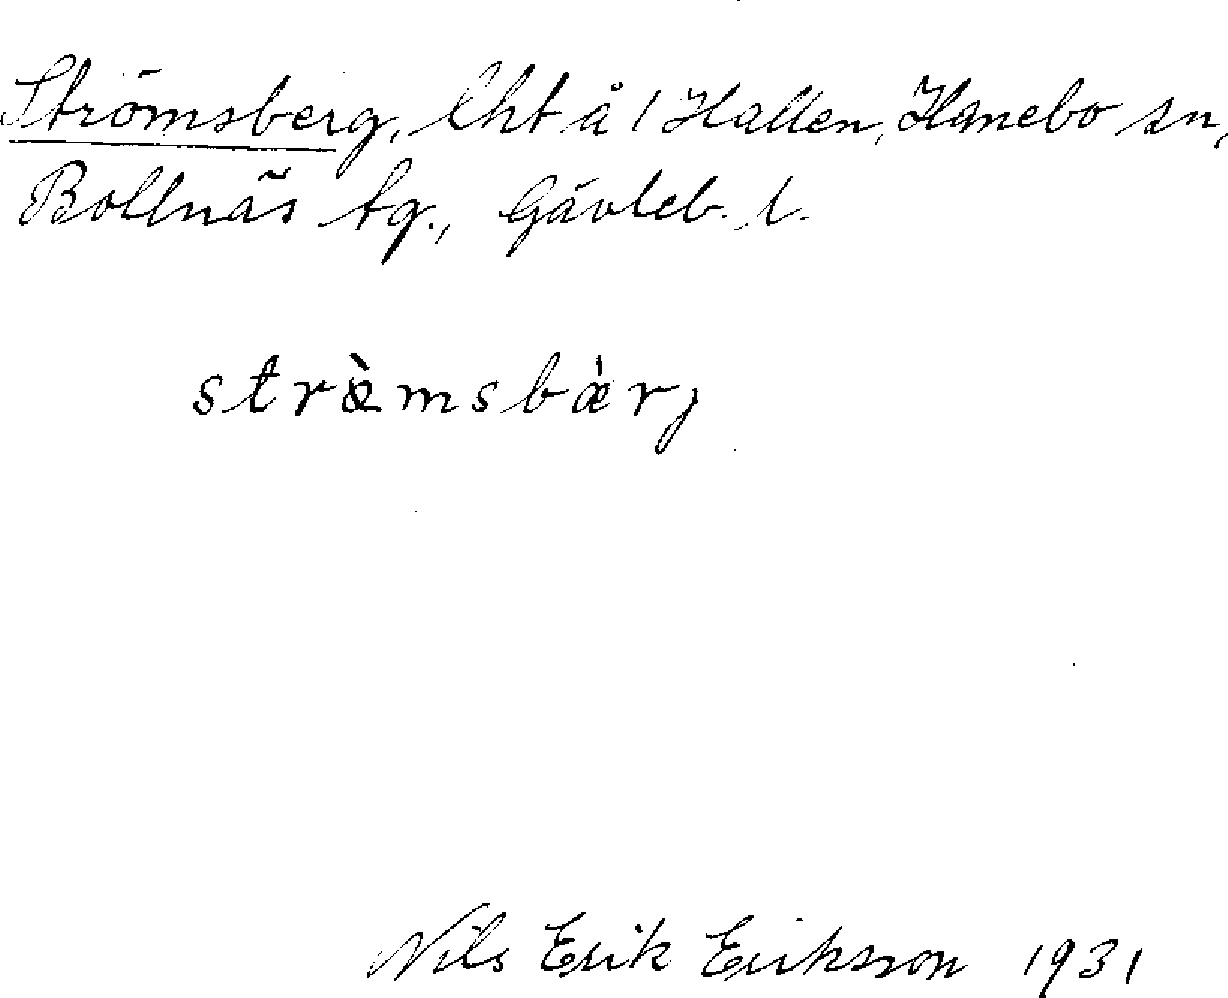 Strömsberg, lht å 1 Hallen, Hanebo sn,
Bollnäs tg., Gävleb. l.
stræ̀msbæ̀rj
Nils Erik Eriksson 1931